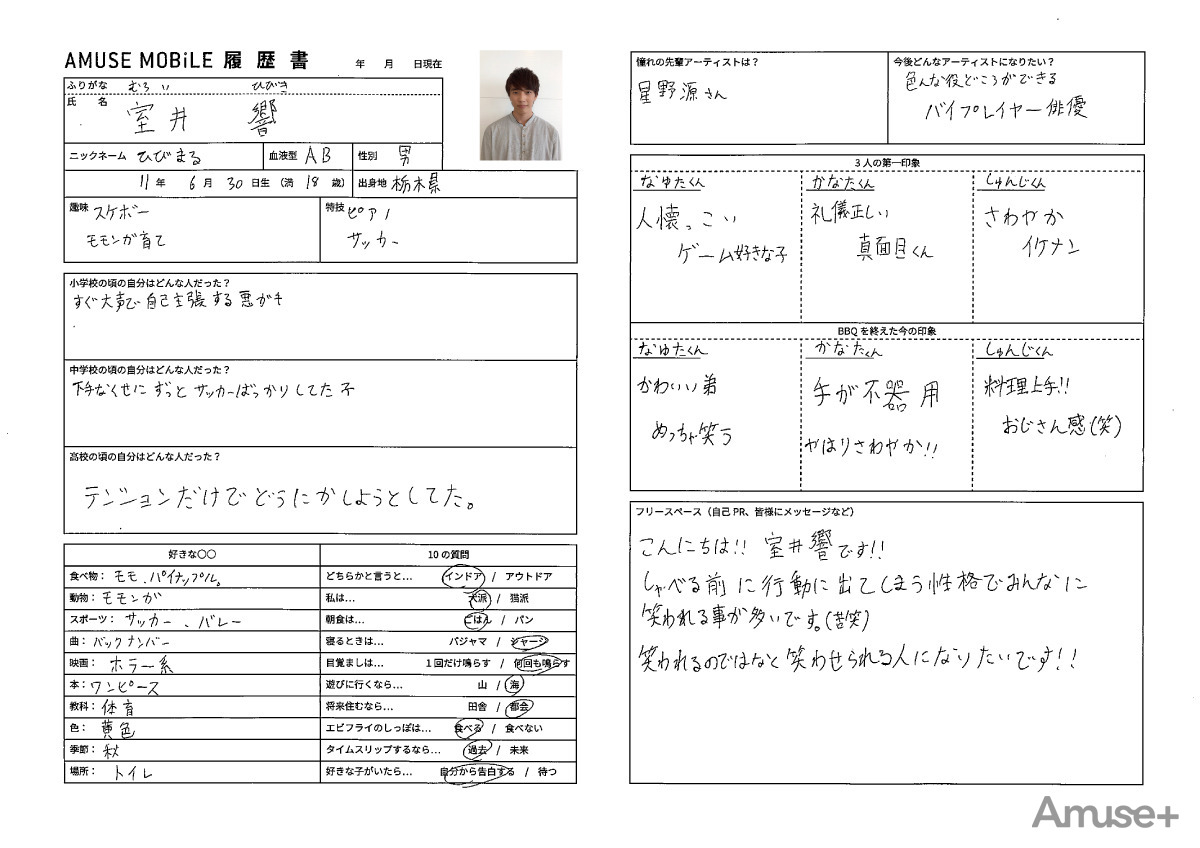 AMUSE MOBiLE 履歴書
年 月 日現在
ふりがな むろい ひびき
氏名 室井 響
ニックネーム ひびまる 血液型 AB 性別 男
11年 6月 30日生 (満 18歳) 出身地 栃木県
趣味 スケボー
モモンガ育て
特技 ピアノ
サッカー
小学校の頃の自分はどんな人だった?
すぐ大声で自己主張する悪ガキ
中学校の頃の自分はどんな人だった?
下手なくせにずっとサッカーばっかりしてた子
高校の頃の自分はどんな人だった?
テンションだけでどうにかしようとしてた。
好きな〇〇
食べ物: モモ、パイナップル。
動物: モモンガ
スポーツ: サッカー、バレー
曲: バックナンバー
映画: ホラー系
本: ワンピース
教科: 体育
色: 黄色
季節: 秋
場所: トイレ
10の質問
どちらかと言うと… インドア / アウトドア
私は… 犬派 / 猫派
朝食は… ごはん / パン
寝るときは… パジャマ / ジャージ
目覚ましは… 1回だけ鳴らす / 何回も鳴らす
遊びに行くなら… 山 / 海
将来住むなら… 田舎 / 都会
エビフライのしっぽは… 食べる / 食べない
タイムスリップするなら… 過去 / 未来
好きな子がいたら… 自分から告白する / 待つ
憧れの先輩アーティストは?
星野源さん
今後どんなアーティストになりたい?
色んな役どころができる
バイプレイヤー俳優
3人の第一印象
なゆたくん
人懐っこい
ゲーム好きな子
かなたくん
礼儀正しい
真面目くん
しゅんじくん
さわやか
イケメン
BBQを終えた今の印象
なゆたくん
かわいい弟
めっちゃ笑う
かなたくん
手が不器用
やはりさわやか!!
しゅんじくん
料理上手!!
おじさん感(笑)
フリースペース(自己PR、皆様にメッセージなど)
こんにちは!! 室井響です!!
しゃべる前に行動に出てしまう性格でみんなに
笑われる事が多いです。(苦笑)
笑われるのではなく笑わせられる人になりたいです!!
Amuse+